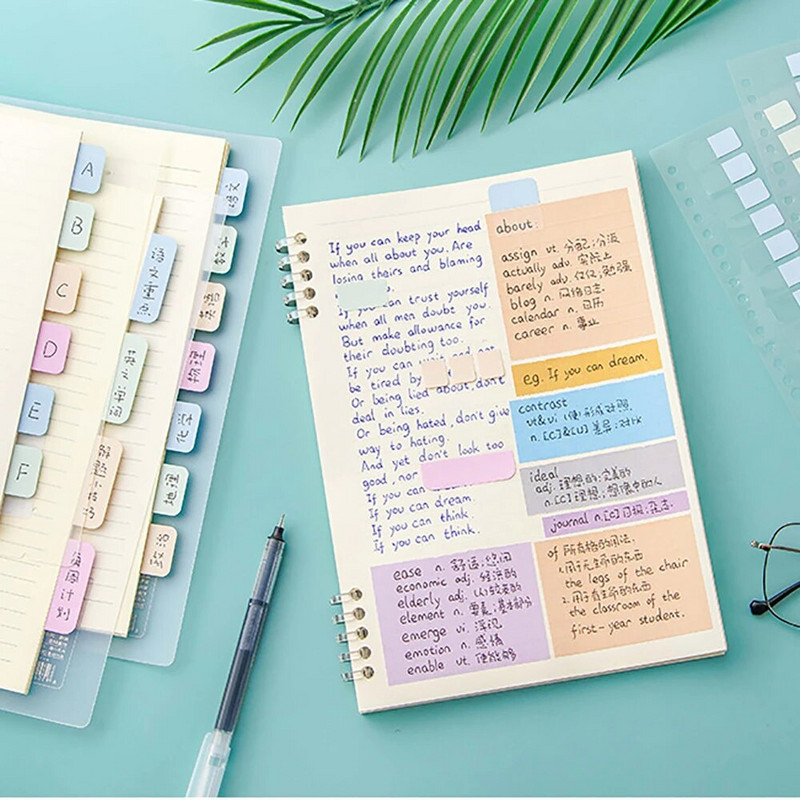 A
B
C
D
E
F
语文重点
解题小技巧
每周计划
语文
数学
英语
物理
化学
地理
If you can keep your head
when all about you. Are
losing theirs and blaming
If you can trust yourself
when all men doubt you.
But make allowance for
their doubting too.
If you can wait and not
be tired by
Or being lied about, don't
deal in lies.
Or being hated, don't give
way to hating.
And yet don't look too
good, nor
If you can
If you can dream.
If you can think.
If you can think.
about:
assign vt. 分配;分派
actually adv. 实际上
barely adv. 仅仅;勉强
blog n. 网络日志
calendar n. 日历
career n. 事业
e.g. If you can dream.
contrast
vt&vi (使)形成对照
n. [C]&[U] 差异;对比
ideal
adj. 理想的;完美的
n. [C] 理想;想像中的人
journal n. [C] 日报;杂志
ease n. 舒适;悠闲
economic adj. 经济的
elderly adj. (人)较老的
element n. 要素;基本部分
emerge vi. 浮现
emotion n. 感情
enable vt. 使能够
of 所有格的用法:
1.用于无生命的东西
the legs of the chair
2.用于有生命的东西
the classroom of the
first-year student.